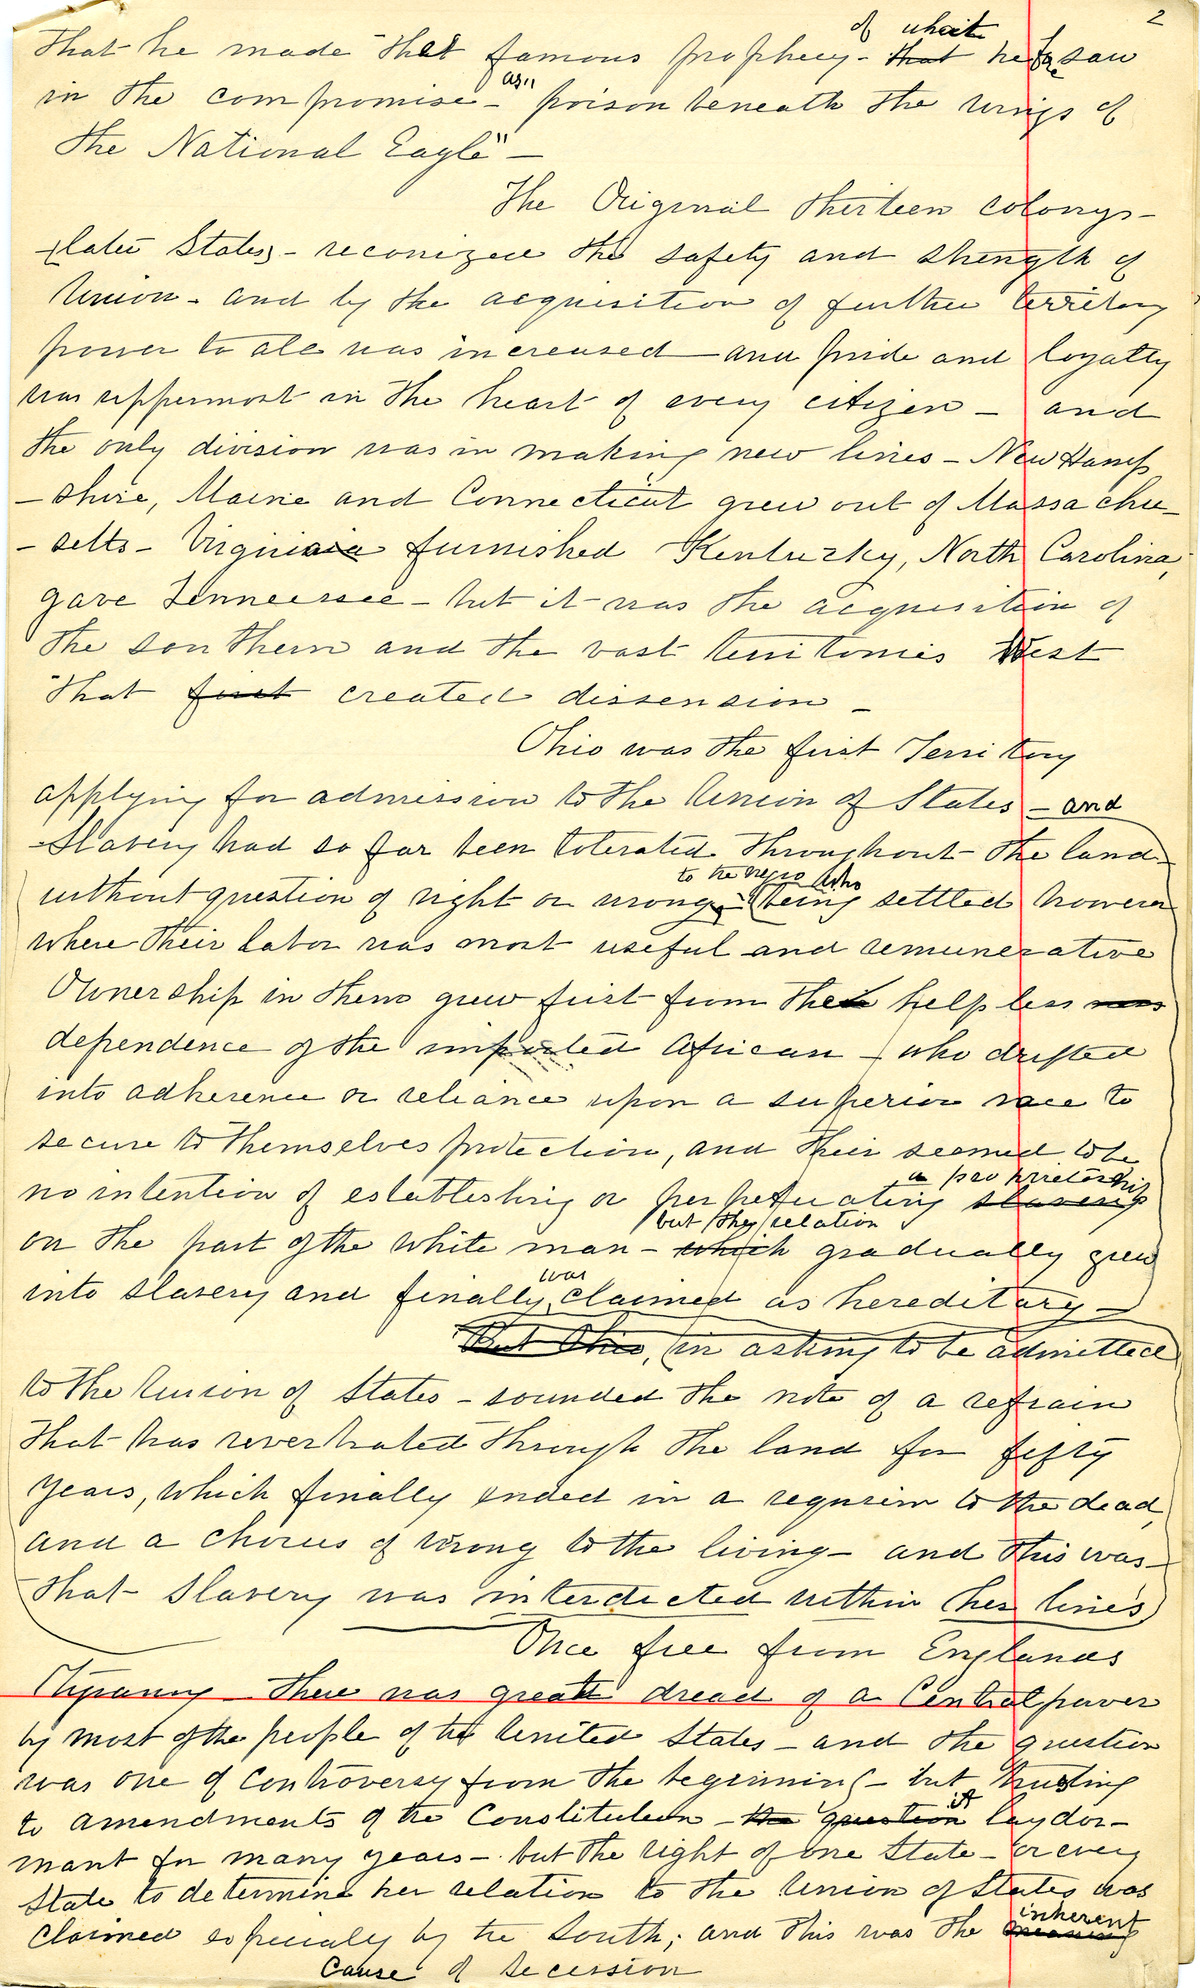 2
that he made that famous prophecy - of what ~~that~~ he foresaw
in the compromise - as "poison beneath the wings of
the National Eagle" -
The Original thirteen colonys -
(later States) - reconized the safety and strength of
Union - and by the acquisition of further territory
power to all was increased - and pride and loyalty
was uppermost in the heart of every citizen - and
the only division was in making new lines - New Hamp
- shire, Maine and Connecticut grew out of Massachu -
- setts - Virginia furnished Kentucky, North Carolina,
gave Tenneessee - but it was the acquisition of
the southern and the vast territories West
that ~~first~~ created dissension -
Ohio was the first Territory
applying for admission to the Union of States - and
Slavery had so far been tolerated throughout the land -
without question of right or wrong - to the negro who (being settled however
where their labor was most useful and remunerative
Ownership in them grew first from the helpless
dependence of the imported African - who drifted
into adherence or reliance upon a superior race to
secure to themselves protection, and their seemed to be
no intention of establishing or perpetuating a proprietorship ~~slavery~~
on the part of the white man - but this relation ~~which~~ gradually grew
into slavery and finally was claimed as hereditary -
~~But Ohio~~, (in asking to be admitted
to the Union of States - sounded the note of a refrain
that has reverbrated through the land for fifty
years, which finally ended in a requiem to the dead,
and a chorus of wrong to the living - and this was -
that slavery was interdicted within her lines)
Once free from Englands
Tyranny - there was great dread of a Central power
by most of the people of the United States - and the question
was one of controversy from the beginning - but trusting
to amendments of the Constitution - ~~the question~~ it lay dor -
mant for many years - but the right of one State - or every
State to determine her relation to the Union of States was
claimed especialy by the South; and this was the inherent
Cause of Secession